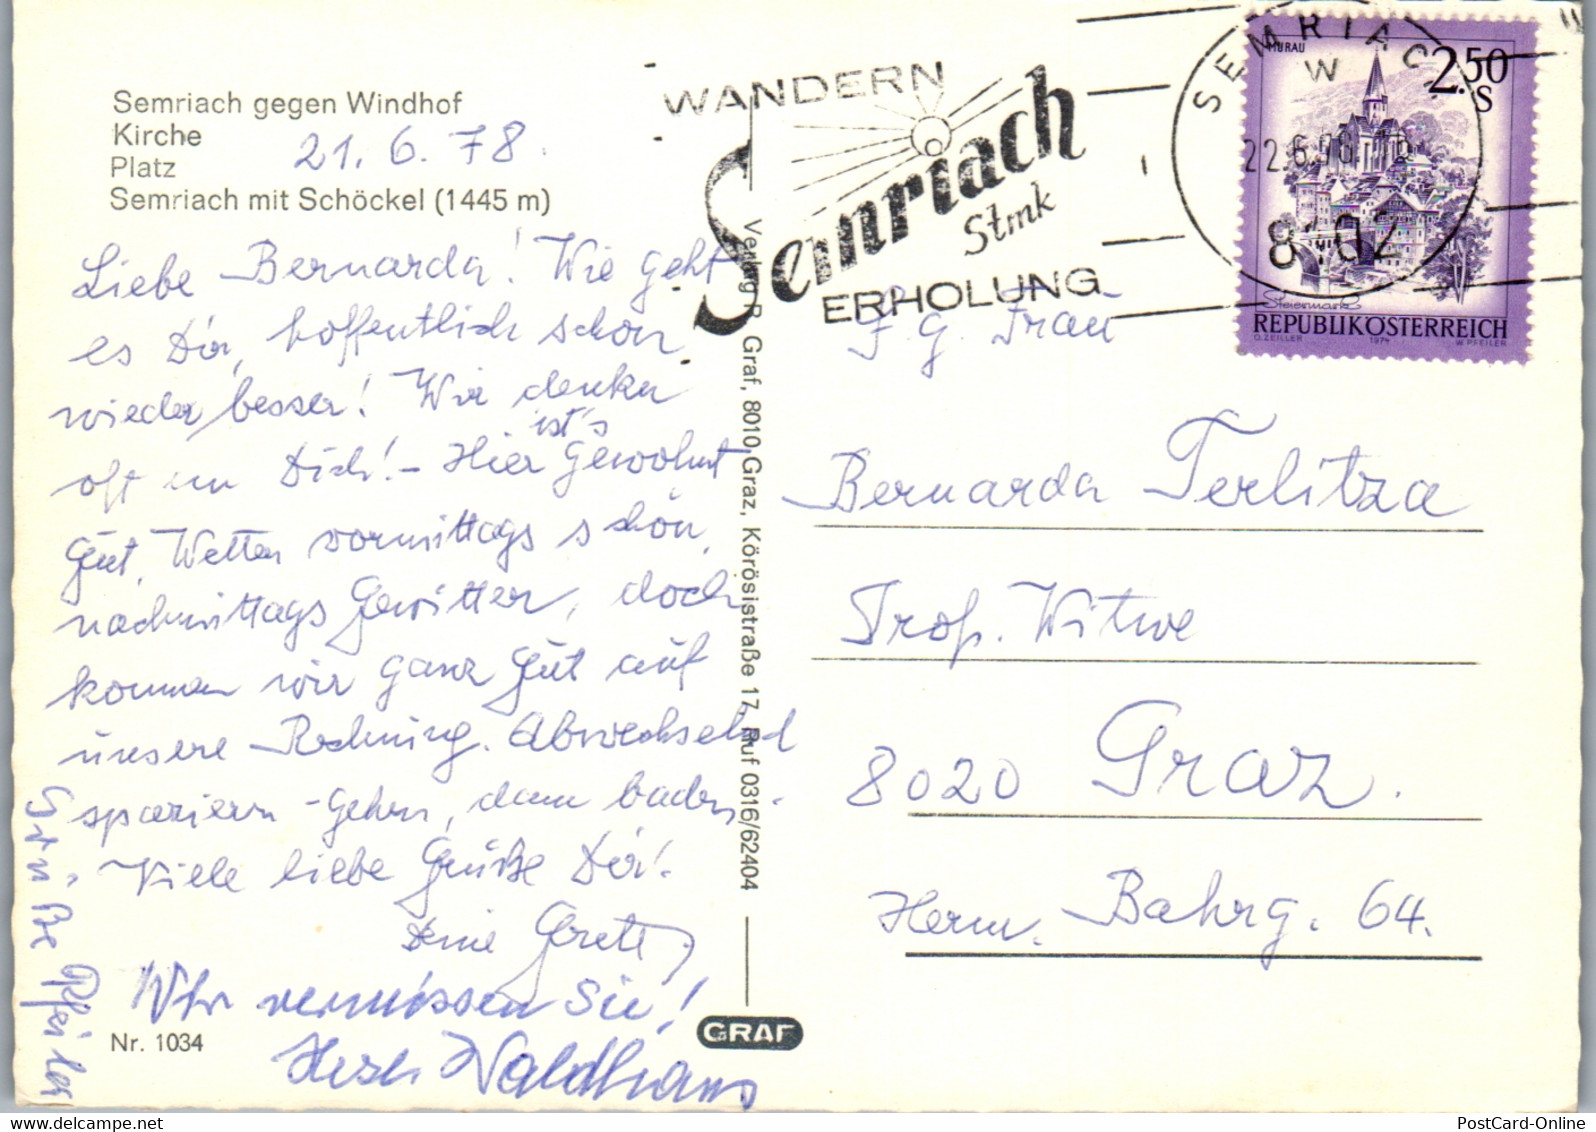 Semriach gegen Windhof
Kirche
Platz
Semriach mit Schöckel (1445 m)
21. 6. 78.
Liebe Bernarda! Wie geht
es Dir, hoffentlich schon
wieder besser! Wir denken
oft an Dich! - Hier ist's gewohnt
gut, Wetter vormittags schön,
nachmittags Gewitter, doch
kommen wir ganz gut auf
unsere Rechnung. Abwechselnd
spazieren-gehen, dann baden.
Viele liebe Grüße Dir!
Deine Grete
Wir vermissen Sie!
Waldhans
Grüße Pfeiler
Nr. 1034
GRAF
Verlag P. Graf, 8010 Graz, Körösistraße 17, Ruf 0316/62404
WANDERN
Semriach
Stmk
ERHOLUNG
SEMRIACH
W
22.6.78
8102
MURAU
2.50
S
Steiermark
REPUBLIK ÖSTERREICH
O. ZEILLER 1974 W. PFEILER
F. g. Frau
Bernarda Terlitza
Prof. Witwe
8020 Graz.
Herm. Bahrg. 64.
PostCard-Online